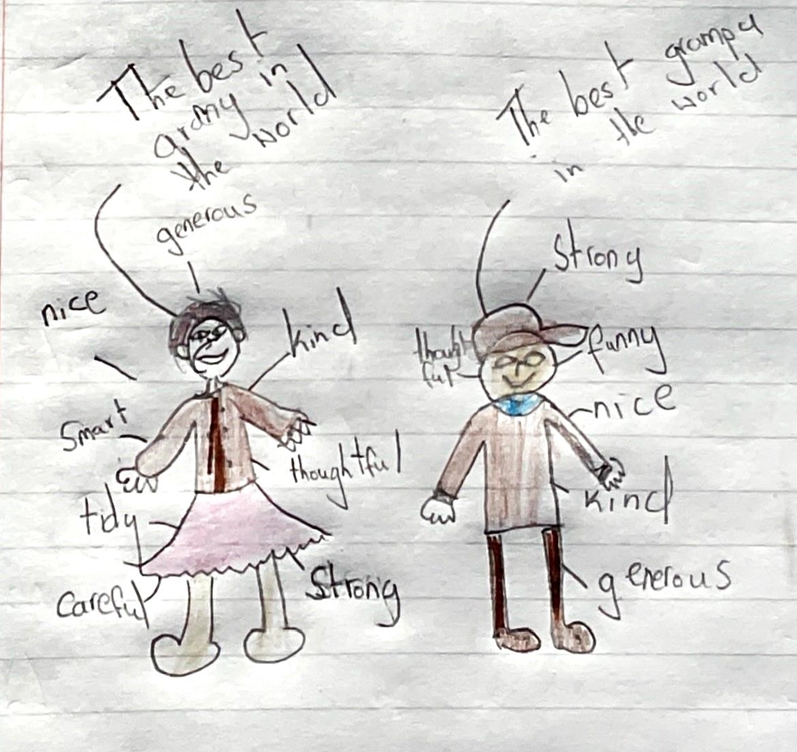 The best
grany in
the world
generous
nice
kind
Smart
thoughtful
tidy
careful
Strong
The best grampa
in the world
Strong
thought
ful
funny
nice
kind
generous